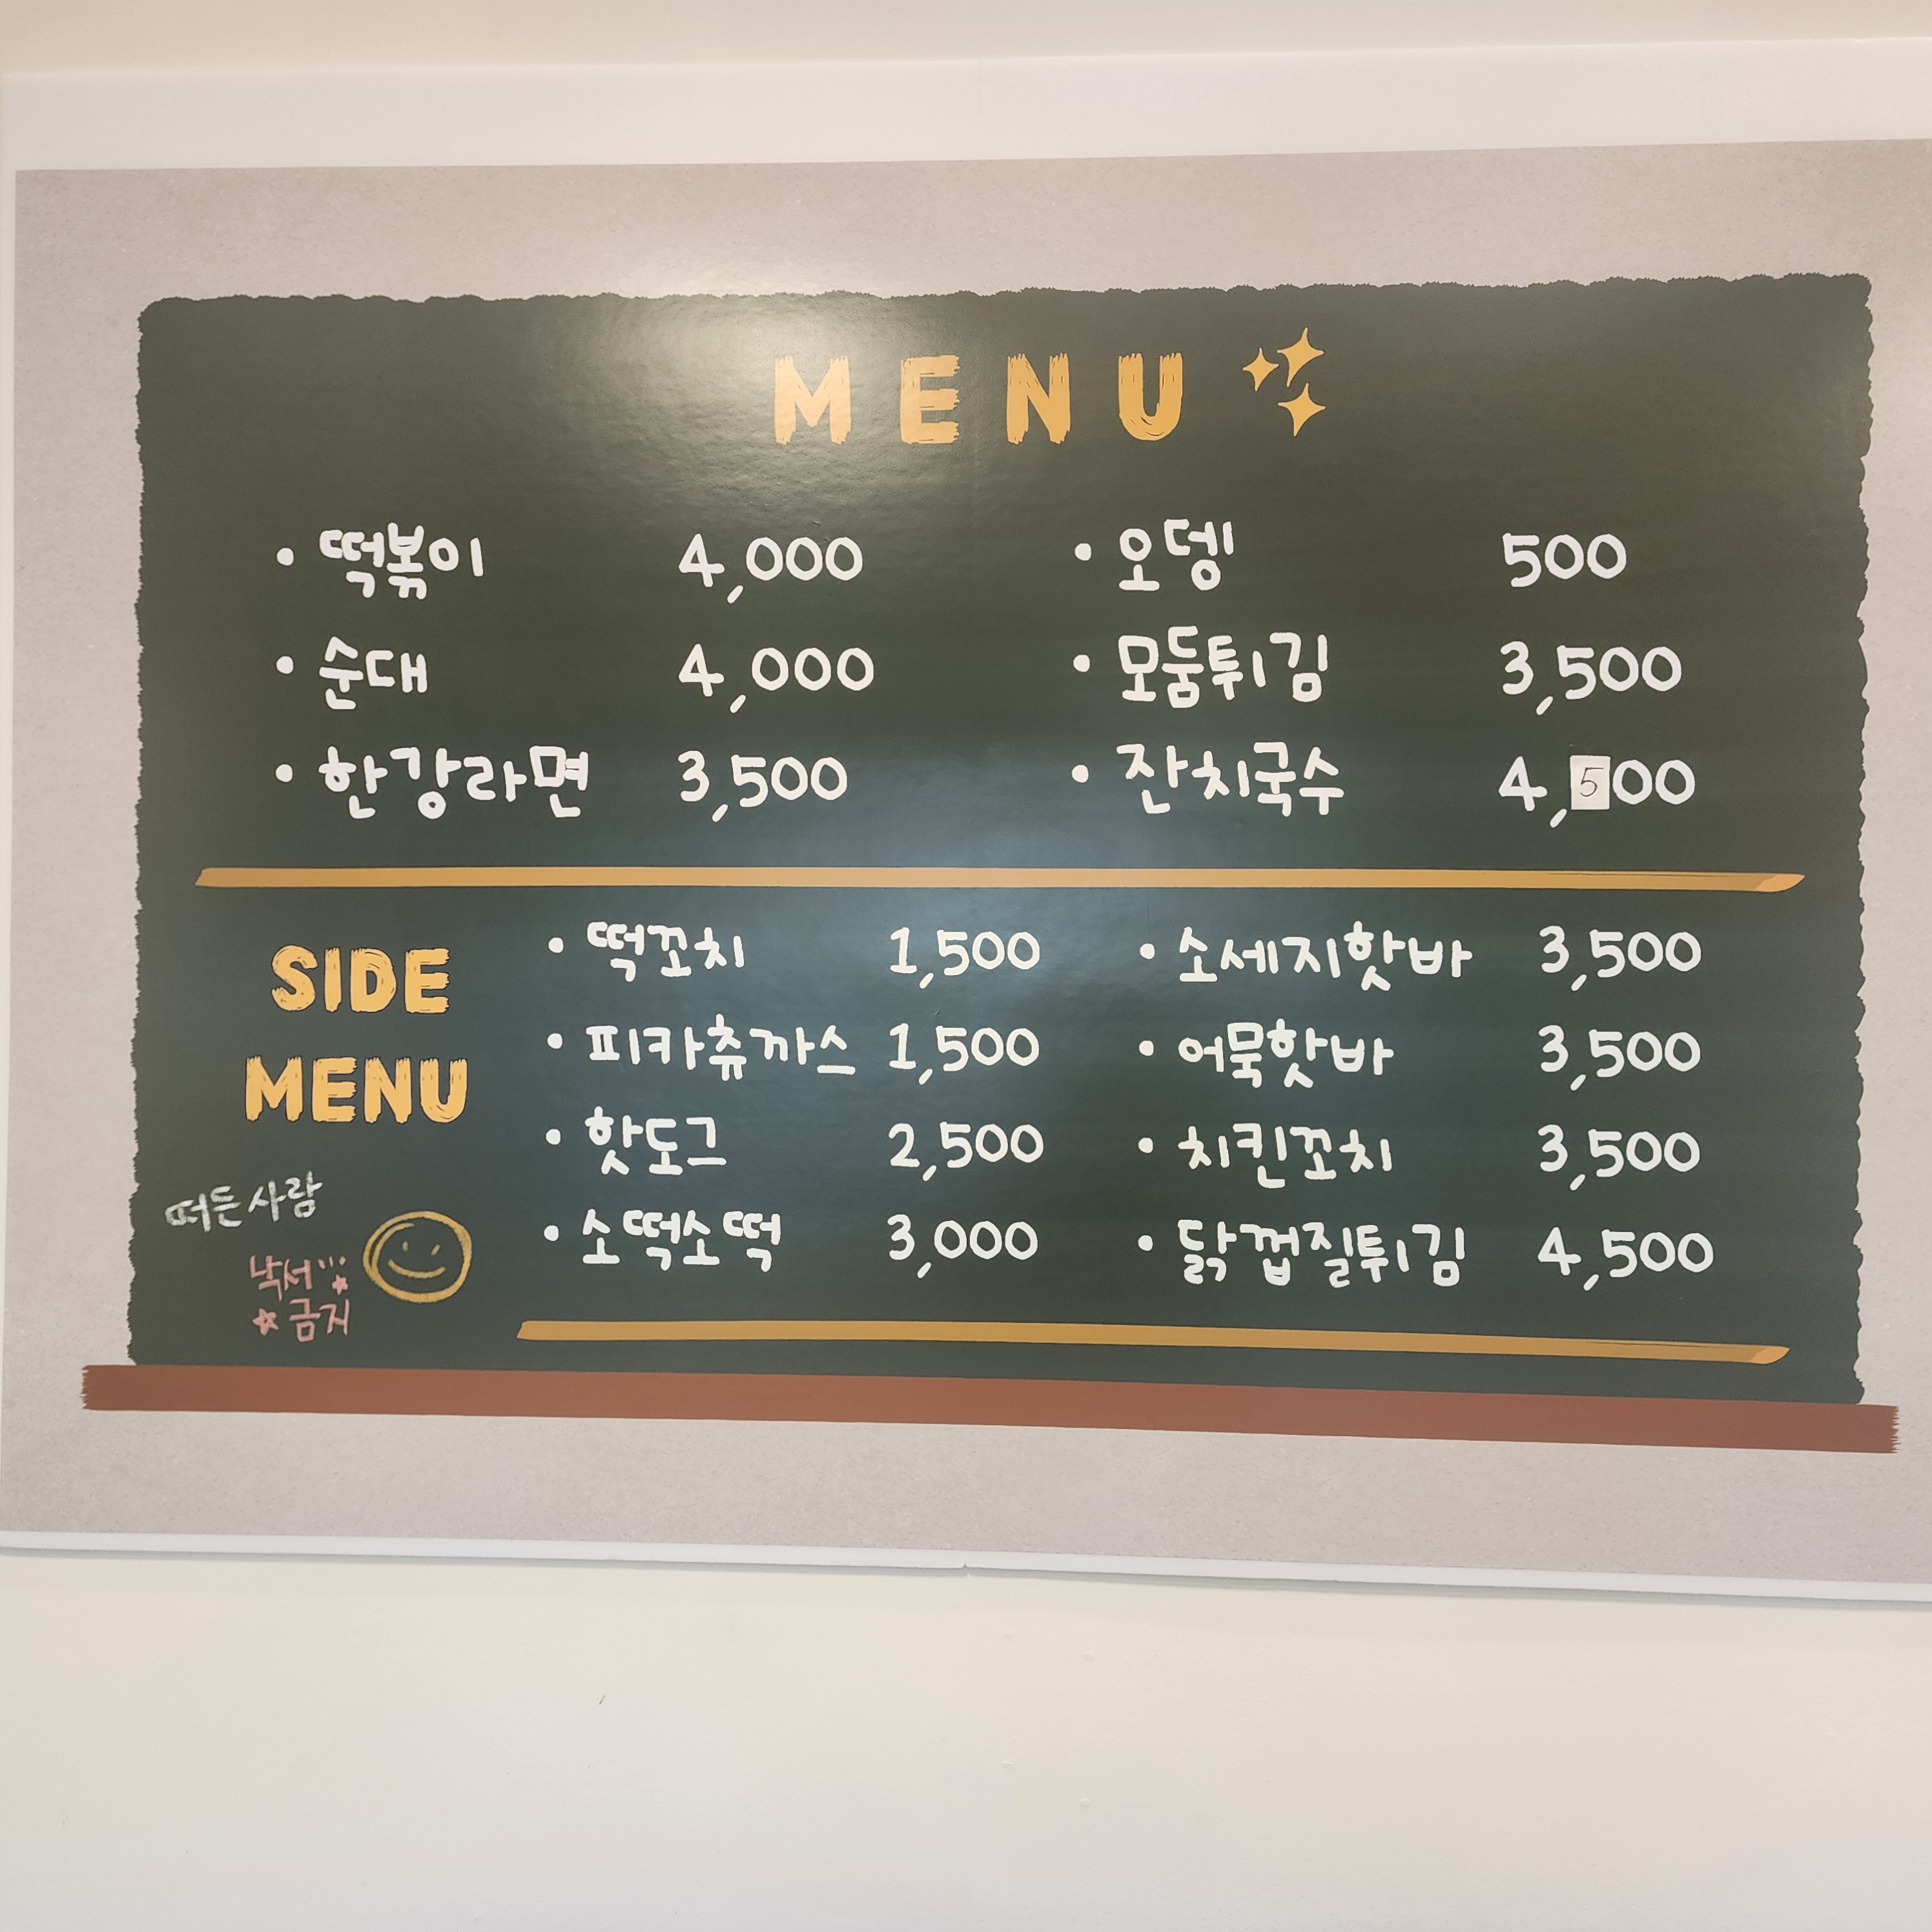 MENU
• 떡볶이 4,000
• 오뎅 500
• 순대 4,000
• 모둠튀김 3,500
• 한강라면 3,500
• 잔치국수 4,500
SIDE
MENU
• 떡꼬치 1,500
• 소세지핫바 3,500
• 피카츄까스 1,500
• 어묵핫바 3,500
• 핫도그 2,500
• 치킨꼬치 3,500
• 소떡소떡 3,000
• 닭껍질튀김 4,500
떠든사람
낙서
금지